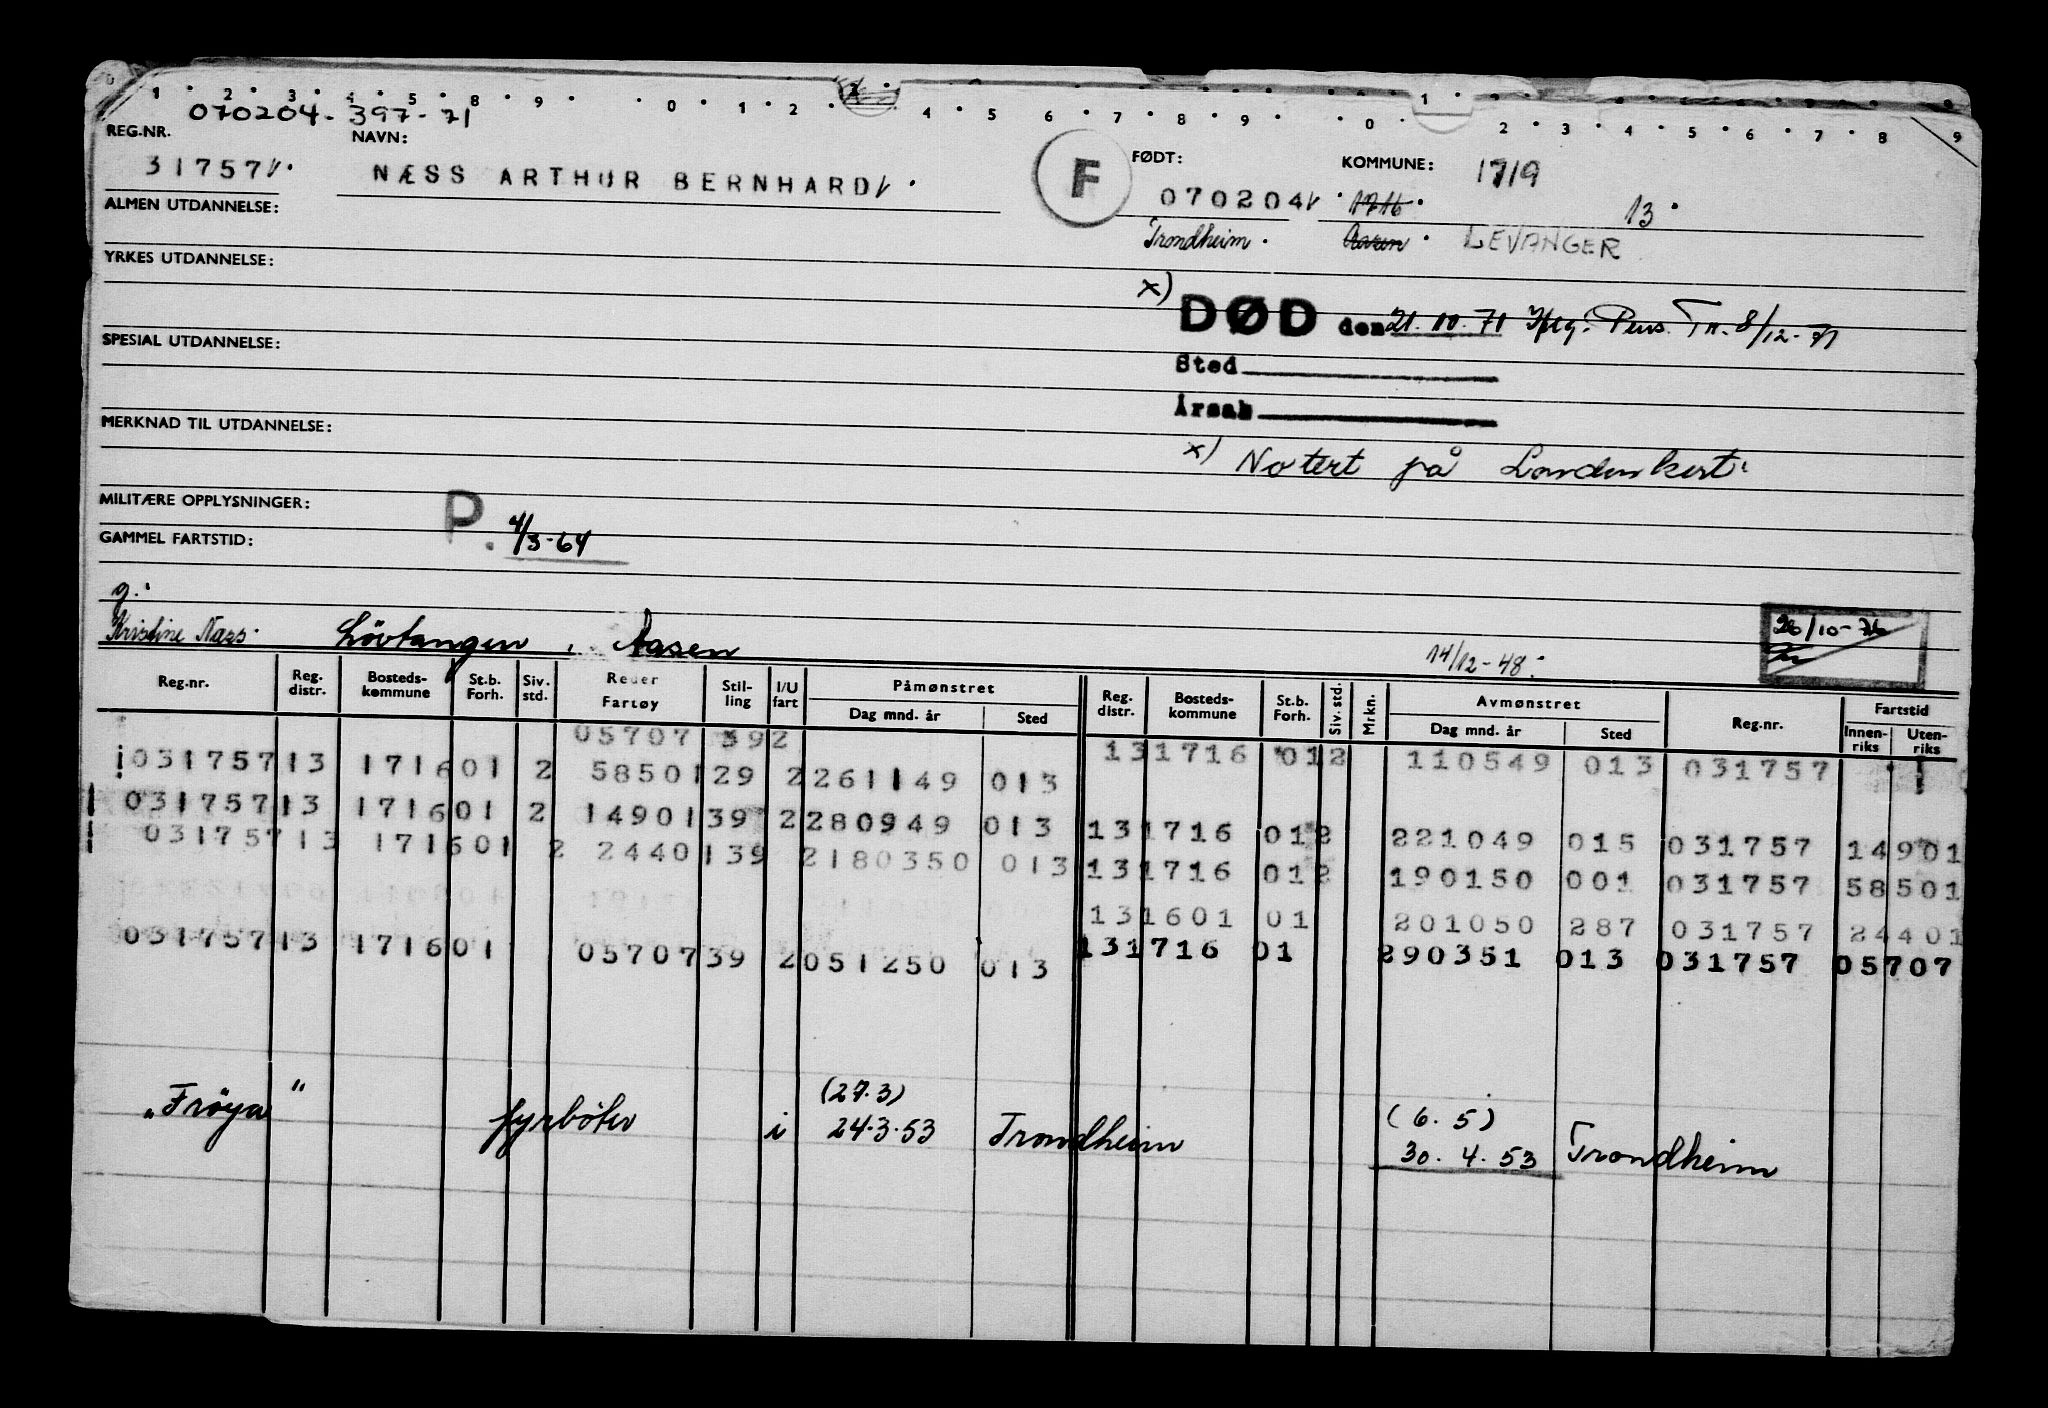 1 2 3 4 5 8 9 0 1 2 4 5 6 7 8 9 0 1 2 3 4 5 6 7 8 9
070204-397-71
REG.NR. NAVN: FØDT: KOMMUNE: 1719
31757 NÆSS ARTHUR BERNHARD F 070204 1716 13
ALMEN UTDANNELSE: Trondheim Aasen LEVANGER
YRKES UTDANNELSE:
x) DØD den 21.10.71 Iflg. Pens. Tr. 8/12-71
SPESIAL UTDANNELSE: Sted
Årsak
MERKNAD TIL UTDANNELSE:
x) Notert på Londonkort
MILITÆRE OPPLYSNINGER: P. 4/3-64
GAMMEL FARTSTID:
g.
Kristine Næss Lövtangen, Aasen 14/12-48 26/10-76
Reg.nr. Reg. distr. Bosteds-kommune St.b. Forh. Siv. std. Reder Fartøy Stil-ling I/U fart Påmønstret Dag mnd. år Sted Reg. distr. Bosteds-kommune St.b. Forh. Siv. std. Mrkn. Avmønstret Dag mnd. år Sted Reg.nr. Fartstid Innen-riks Uten-riks
05707 392 131716 012 110549 013 031757
031757 13 1716 01 2 58501 29 2 261149 013
031757 13 1716 01 2 14901 39 2 280949 013 131716 012 221049 015 031757 14901
031757 13 1716 01 2 24401 39 2 180350 013 131716 012 190150 001 031757 58501
131601 01 201050 287 031757 24401
031757 13 1716 01 05707 39 2 051250 013 131716 01 290351 013 031757 05707
(27.3) (6.5)
"Fröya" fyrböter i 24.3.53 Trondheim 30.4.53 Trondheim